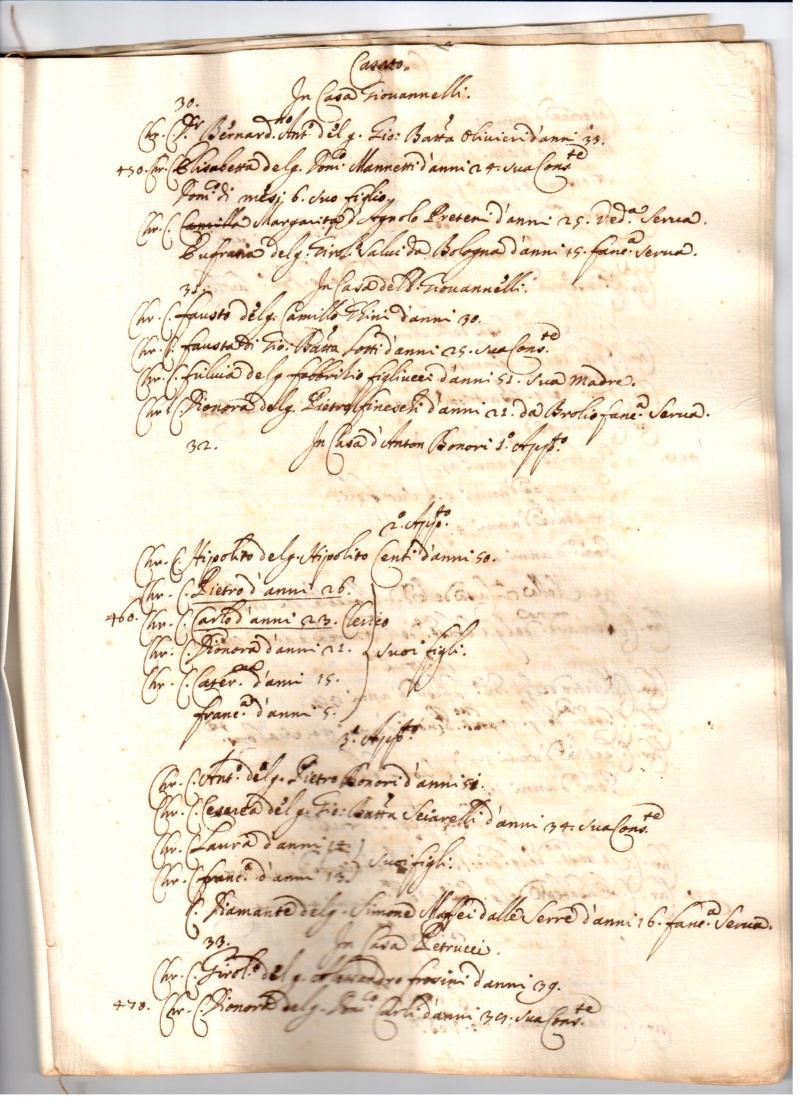 Casato.
30. In Casa Giovannelli.
Chr. Sr. Bernard.no Ant.o del q. Gio: Batta Olivieri d'anni 33.
450. Chr. C. Elisabetta del q. Dom.co Mannetti d'anni 24. sua Cons.te
Dom.co di mesi 6. suo figlio
Chr. C. Camilla Margarita d'Agnolo Preteni d'anni 25. Ved.a Serua.
Eufrasia del q. Girol.o Salui da Bologna d'anni 15. fanc.a serua.
31. In Casa del Giovannelli.
Chr. C. Fausto del q. Camillo Ghini d'anni 30.
Chr. C. Fausta di Gio: Batta Lotti d'anni 25. sua Cons.te
Chr. C. Fulvia del q. figliucci d'anni 51. sua Madre.
Chr. C. Dionora del q. Pietro Fineschi d'anni 21. da Brolio fanc.a Serua.
32. In Casa d'Anton Bonori 1.o App.to
2.o App.to
Chr. C. Hipolito del q. Hipolito Centi d'anni 50.
Chr. C. Pietro d'anni 26.
460. Chr. C. Carlo d'anni 23. Clerico
Chr. C. Dionora d'anni 21. suoi figli.
Chr. C. Cater.na d'anni 15.
Franc.a d'anni 5.
3.o App.to
Chr. C. Ant.o del q. Pietro Bonori d'anni 51.
Chr. C. Cesarea del q. Gio: Batta Sciarelli d'anni 34. sua Cons.te
Chr. C. Laura d'anni 14. suoi figli.
Chr. C. Franc.a d'anni 13.
C. Diamante del q. Simone Maffei dalle Serre d'anni 16. fanc.a Serua.
33. In Casa Petrucci.
Chr. C. Girol.o del q. Frosini d'anni 39.
470. Chr. C. Dionora del q. Carli d'anni 39. sua Cons.te